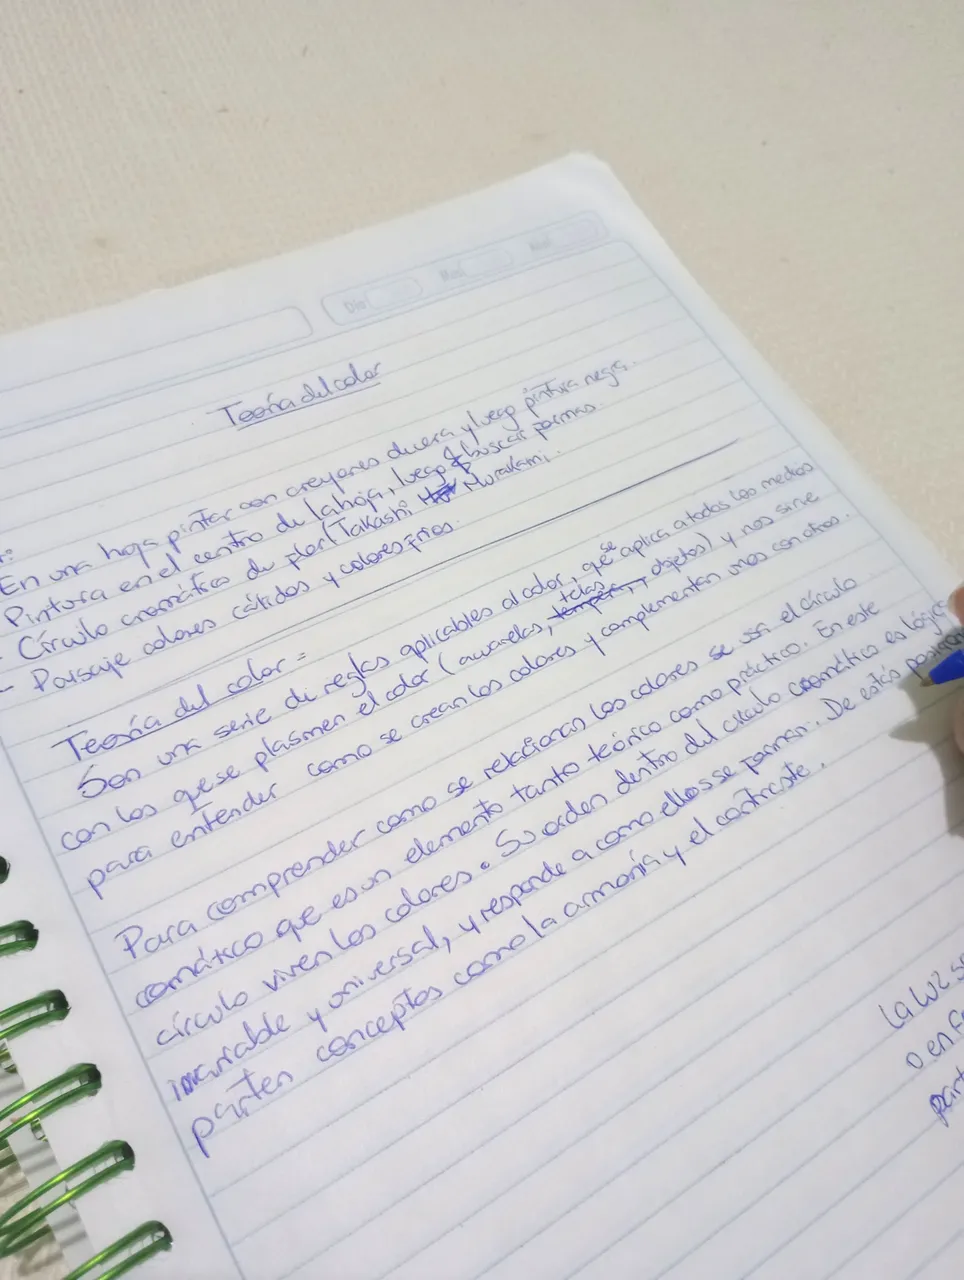 Día Mes Año
Teoría del color
En una hoja pintar con creyones de cera y luego pintura negra.
Pintura en el centro de la hoja, luego buscar formas.
- Círculo cromático de flor (Takashi Murakami.
- Paisaje colores cálidos y colores fríos.
Teoría del color =
Son una serie de reglas aplicables al color, que se aplica a todos los medios
con los que se plasmen el color (acuarelas, telas, objetos) y nos sirve
para entender como se crean los colores y complementan unos con otros.
Para comprender como se relacionan los colores se usa el círculo
comático que es un elemento tanto teórico como práctico. En este
círculo viven los colores. Su orden dentro del círculo cromático es lógica
invariable y universal, y responde a como ellos se forman. De estás
parten conceptos como la armonía y el contraste.
La luz
o en
part